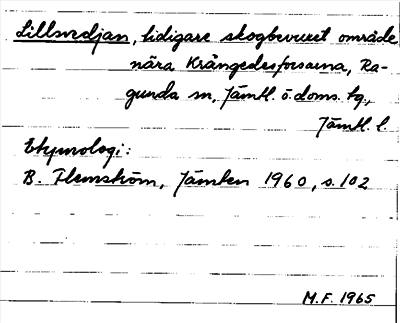 Lillsvedjan, tidigare skogbevuxet område
nära Krångedesforsarna, Ra-
gunda sn, Jämtl. ö. doms. tg.,
Jämtl. l.
Etymologi:
B. Flemström, Jämten 1960, s. 102
M.F. 1965